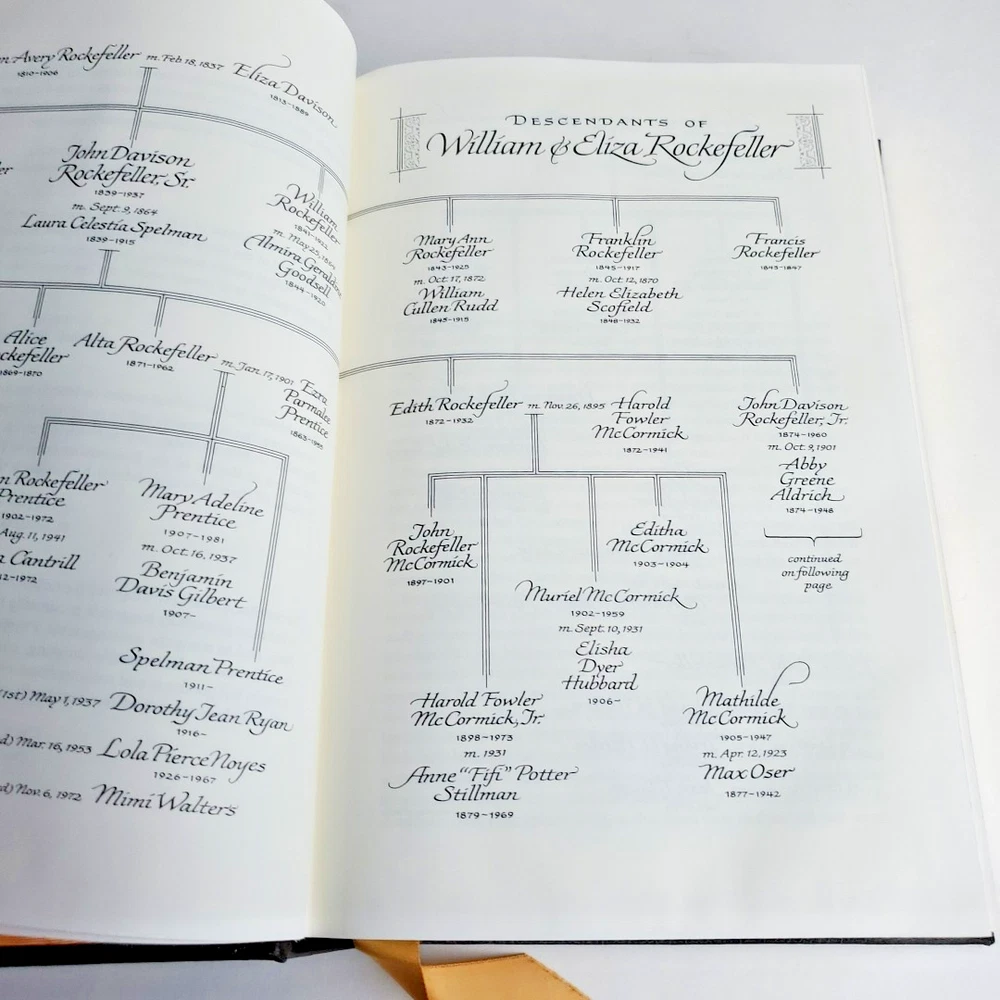 Avery Rockefeller m. Feb 18, 1837 Eliza Davison
1810-1906
1813-1889
John Davison
Rockefeller, Sr.
1839-1937
m. Sept. 9, 1864
Laura Celestia Spelman
1839-1915
William
Rockefeller
m. May 25, 1864
Almira Geraldine
Goodsell
1844-1920
Alice
1869-1870
Alta Rockefeller m. Jan. 17, 1901 Ezra
Parmalee
Prentice
1871-1962
Rockefeller
Prentice
1902-1972
Aug. 11, 1941
Cantrill
Mary Adeline
Prentice
1907-1981
m. Oct. 16, 1937
Benjamin
Davis Gilbert
1907-
Spelman Prentice
1911-
(1st) May 1, 1937 Dorothy Jean Ryan
1916-
Mar. 16, 1953 Lola Pierce Noyes
1926-1967
Nov. 6, 1972 Mimi Walters
DESCENDANTS OF
William & Eliza Rockefeller
Mary Ann
Rockefeller
1843-1925
m. Oct 17, 1872
William
Cullen Rudd
1845-1915
Franklin
Rockefeller
1845-1917
m. Oct. 12, 1870
Helen Elizabeth
Scofield
1848-1932
Francis
Rockefeller
1845-1847
Edith Rockefeller m. Nov. 26, 1895 Harold
Fowler
McCormick
1872-1932
1872-1941
John Davison
Rockefeller, Jr.
1874-1960
m. Oct. 9, 1901
Abby
Greene
Aldrich
1874-1948
continued
on following
page
John
Rockefeller
McCormick
1897-1901
Editha
McCormick
1903-1904
Muriel McCormick
1902-1959
m. Sept. 10, 1931
Elisha
Dyer
Hubbard
1906-
Harold Fowler
McCormick, Jr.
1898-1973
m. 1931
Anne "Fifi" Potter
Stillman
1879-1969
Mathilde
McCormick
1905-1947
m. Apr. 12, 1923
Max Oser
1877-1942